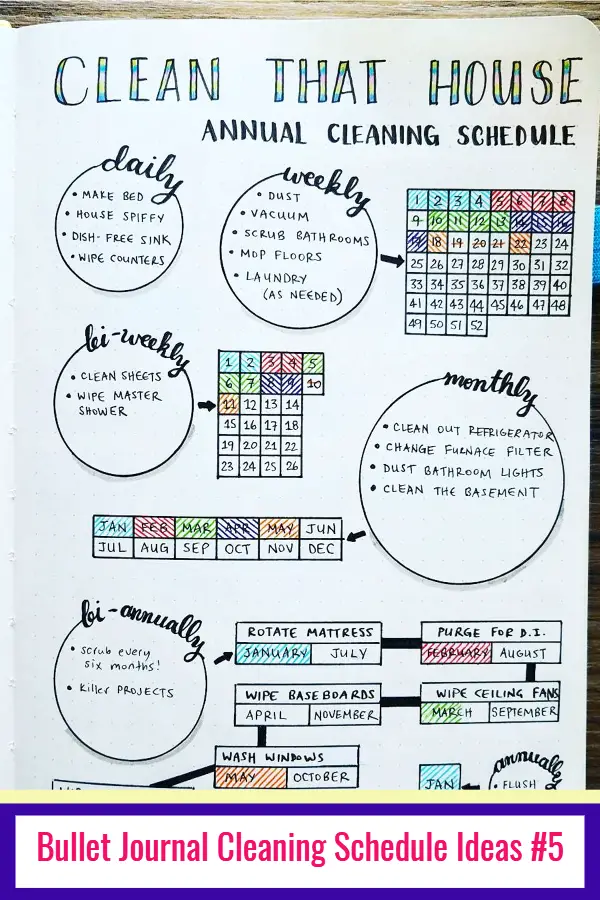 CLEAN THAT HOUSE
ANNUAL CLEANING SCHEDULE
daily
• MAKE BED
• HOUSE SPIFFY
• DISH-FREE SINK
• WIPE COUNTERS
weekly
• DUST
• VACUUM
• SCRUB BATHROOMS
• MOP FLOORS
• LAUNDRY
(AS NEEDED)
1 2 3 4 5 6 7 8
9 10 11 12 13 14 15 16
17 18 19 20 21 22 23 24
25 26 27 28 29 30 31 32
33 34 35 36 37 38 39 40
41 42 43 44 45 46 47 48
49 50 51 52
bi-weekly
• CLEAN SHEETS
• WIPE MASTER
SHOWER
1 2 3 4 5
6 7 8 9 10
11 12 13 14
15 16 17 18
19 20 21 22
23 24 25 26
monthly
• CLEAN OUT REFRIGERATOR
• CHANGE FURNACE FILTER
• DUST BATHROOM LIGHTS
• CLEAN THE BASEMENT
JAN FEB MAR APR MAY JUN
JUL AUG SEP OCT NOV DEC
bi-annually
• scrub every
six months!
• Killer PROJECTS
ROTATE MATTRESS
JANUARY JULY
PURGE FOR D.I.
FEBRUARY AUGUST
WIPE BASEBOARDS
APRIL NOVEMBER
WIPE CEILING FANS
MARCH SEPTEMBER
WASH WINDOWS
MAY OCTOBER
annually
JAN
• FLUSH
Bullet Journal Cleaning Schedule Ideas #5